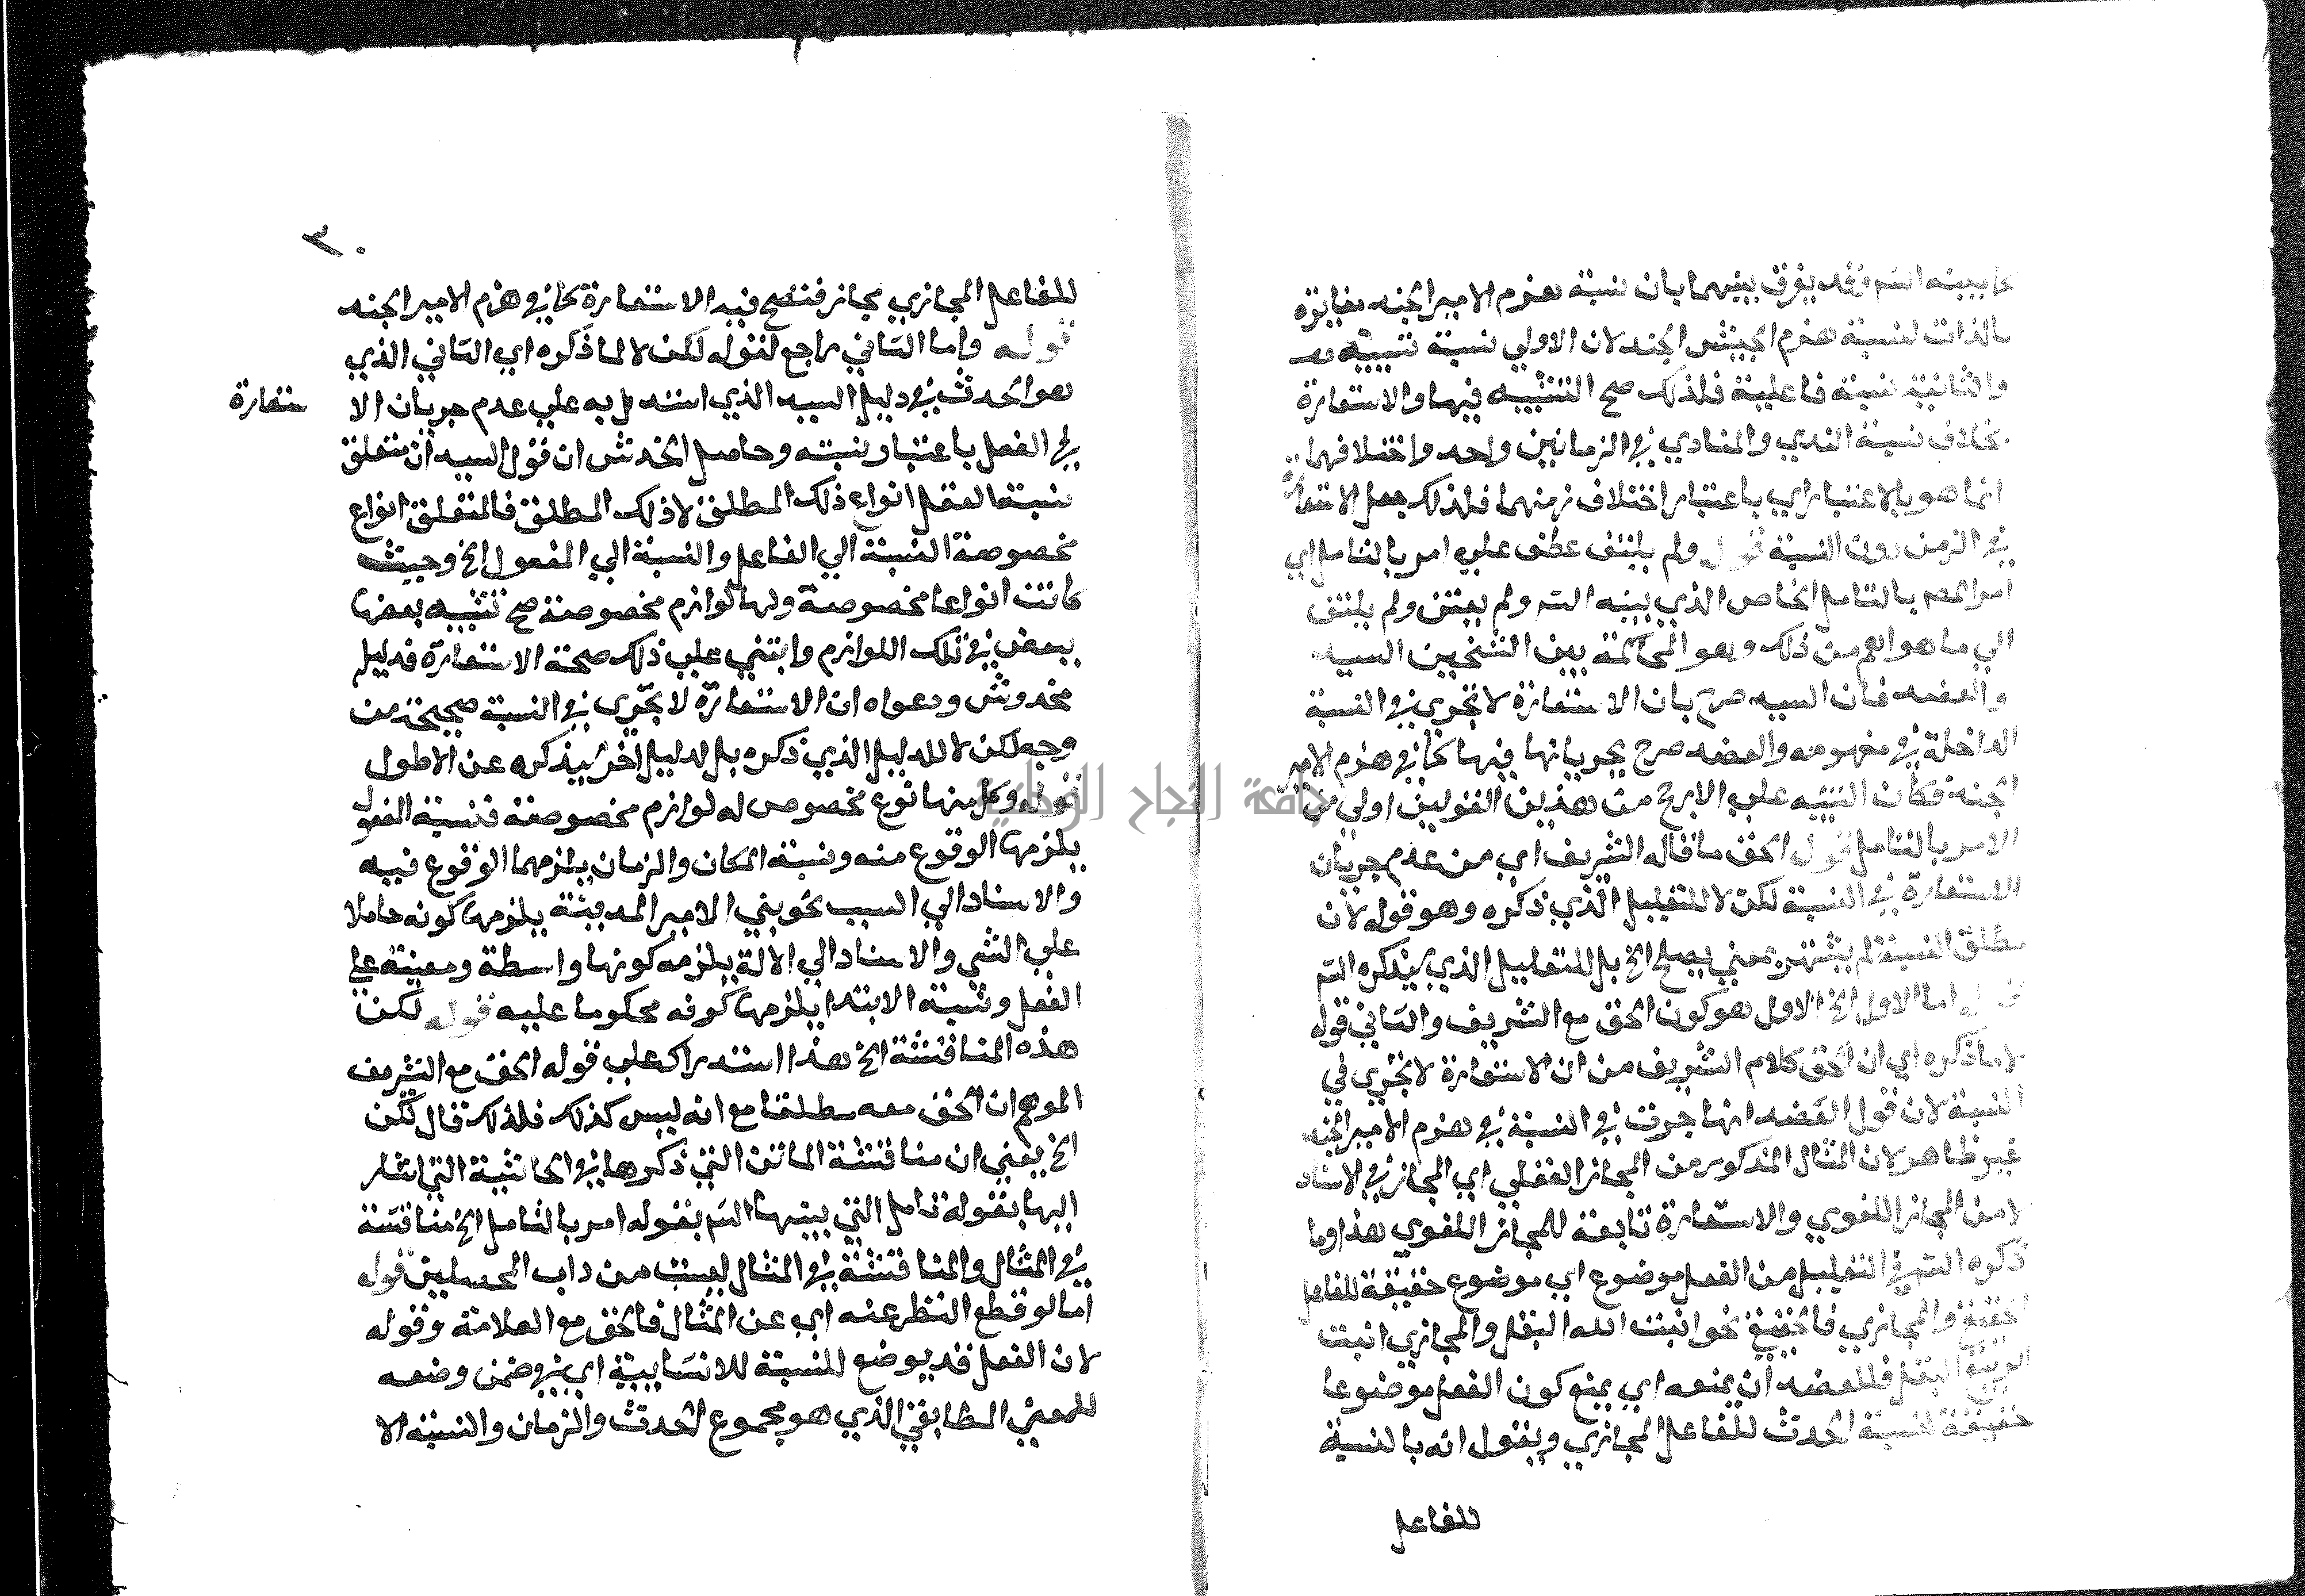 كما بينه الشم وقد يفرق بينهما بان نسبة هزم الامير الجند مغايرة
بالذات لنسبة هزم الجيش الجند لان الاولي نسبة تسببية
والثانية نسبة فاعلية فلذلك صح التشبيه فيها والاستعارة
بخلاف نسبة الندي والمنادي في الزمانين واحد واختلافهما
انما هو بالاعتبار اي باعتبار اختلاف زمنهما فلذلك جعل الاستعارة
في الزمن دون النسبة قوله ولم يلتفت عطف علي امر بالتامل اي
امر العصم بالتامل الخاص الذي بينه الشم ولم يعتن ولم يلتفت
الي ما هو اهم من ذلك وهو المحاكمة بين الشيخين السيد
والعضد فان السيد صرح بان الاستعارة لا تجري في النسبة
الداخلة في مفهومه والعضد صرح بجريانها فيها كما في هزم الامير
الجند فكان التنبيه علي الارجح من هذين القولين اولي من
الامر بالتامل قوله الحق ما قاله الشريف اي من عدم جريان
الاستعارة في النسبة لكن لا للتعليل الذي ذكره وهو قوله لان
مطلق النسبة لم يشتهر بمعني يصلح الخ بل للتعليل الذي سيذكره الشم
قوله اما الاول الخ الاول هو كون الحق مع الشريف والثاني قوله
لا ما ذكره اي ان الحق كلام الشريف من ان الاستعارة لا تجري في
النسبة لان قول العضد انها جرت في النسبة في هزم الامير الجند
غير ظاهر لان المثال المذكور من المجاز العقلي اي المجاز في الاسناد
لا من المجاز اللغوي والاستعارة تابعة للمجاز اللغوي هذا وما
ذكره الشم في التعليل من الفعل موضوع اي موضوع حقيقة للفاعل
الحقيقي والمجازي فالحقيقي نحو انبت الله البقل والمجازي انبت
الربيع البقل فللعضد ان يمنعه اي يمنع كون الفعل موضوعا
حقيقة لنسبة الحدث للفاعل المجازي ويقول انه بالنسبة
للفاعل
٣٠
للفاعل المجازي مجاز فتصح فيه الاستعارة كما في هزم الامير الجند
قوله واما الثاني راجع لقوله لكن لا لما ذكره اي الثاني الذي
هو الخدش في دليل السيد الذي استدل به علي عدم جريان الا
ستعارة
في الفعل باعتبار نسبته وحاصل الخدش ان قول السيد ان متعلق
نسبة الفعل انواع ذلك المطلق لا ذلك المطلق فالمتعلق انواع
مخصوصة النسبة الي الفاعل والنسبة الي المفعول الخ وحيث
كانت انواعا مخصوصة ولها لوازم مخصوصة صح تشبيه بعضها
ببعض في تلك اللوازم وابتني علي ذلك صحة الاستعارة فدليله
مخدوش ودعواه ان الاستعارة لا تجري في النسبة صحيحة من
وجه لكن لا للدليل الذي ذكره بل لدليل اخر سيذكره عن الاطول
قوله وكل منها نوع مخصوص له لوازم مخصوصة فنسبة المفعول
يلزمها الوقوع منه ونسبة المكان والزمان يلزمهما الوقوع فيه
والاسناد الي السبب نحو بني الامير المدينة يلزمها كونه حاملا
علي الشي والاسناد الي الالة يلزمه كونها واسطة ومعينة علي
الفعل ونسبة الابتدا يلزمها كونه محكوما عليه قوله لكن
هذه المناقشة الخ هذا استدراك علي قوله الحق مع الشريف
الموهم ان الحق معه مطلقا مع انه ليس كذلك فلذلك قال لكن
الخ يعني ان مناقشة الماتن التي ذكرها في الحاشية التي اشار
اليها بقوله تامل التي بينها الشم بقوله امر بالتامل الخ مناقشة
في المثال والمناقشة في المثال ليست من داب المحصلين قوله
اما لو قطع النظر عنه اي عن المثال فالحق مع العلامة وقوله
لان الفعل قد يوضع للنسبة للانشايية اي في ضمن وضعه
للمعني المطابقي الذي هو مجموع الحدث والزمان والنسبة الا
جامعة النجاح الوطنية